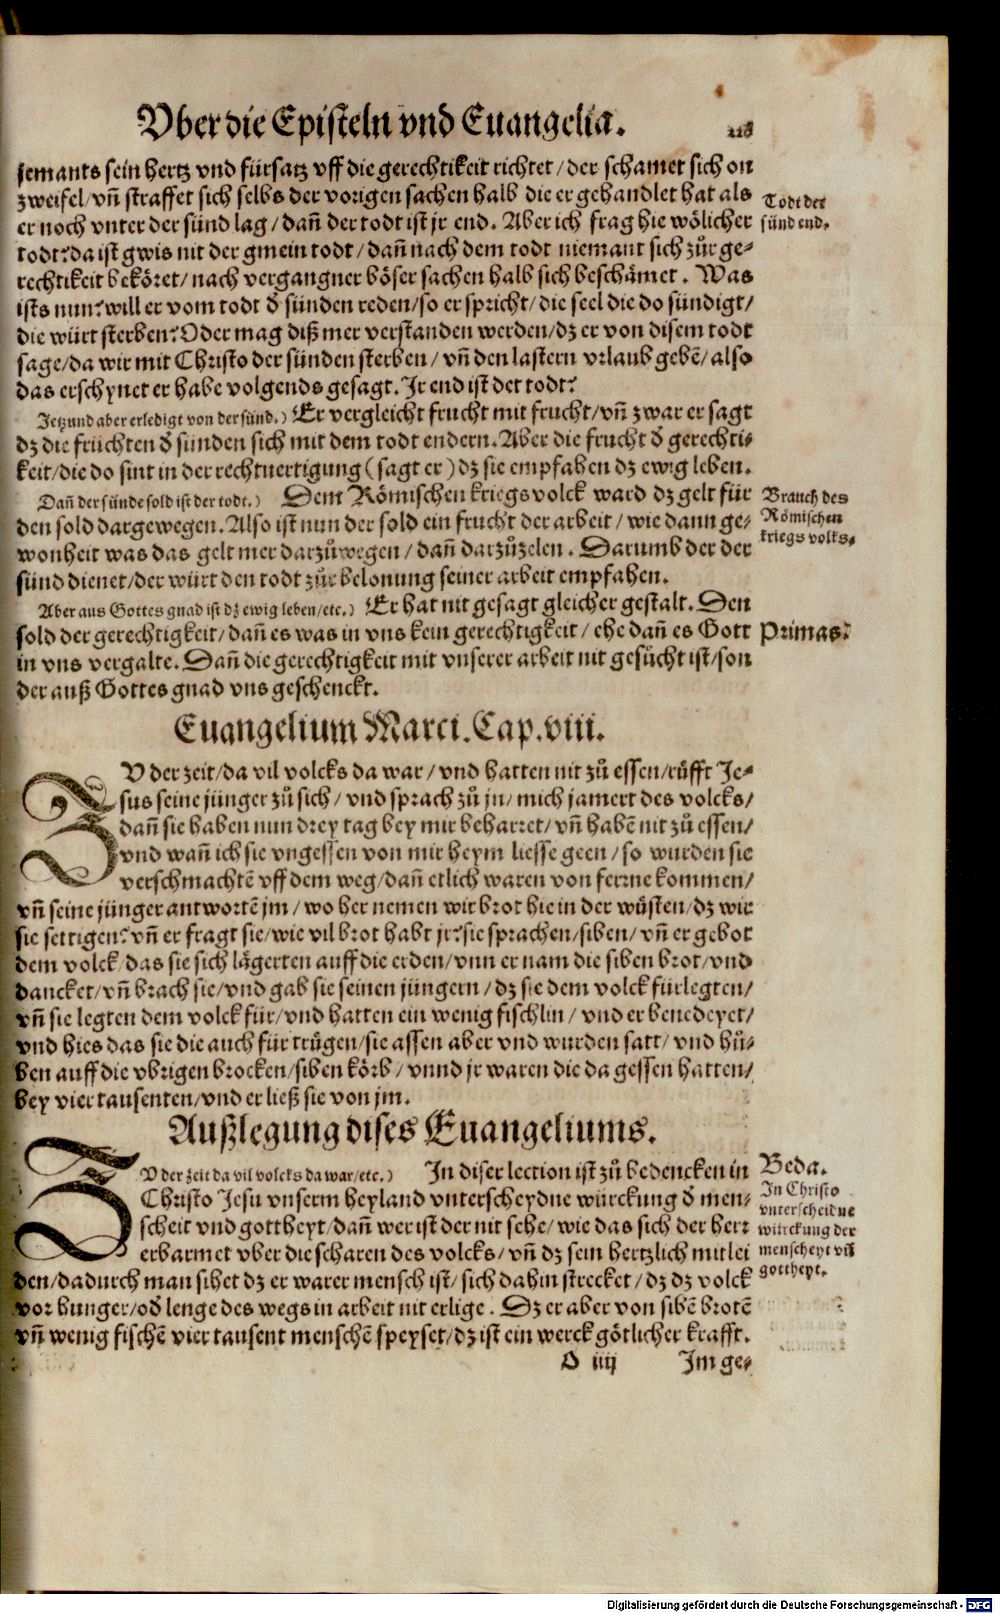 Vber die Episteln vnd Euangelia.
jemants sein hertz vnd fürsatz vff die gerechtikeit richtet/ der schamet sich on
zweifel/ vñ straffet sich selbs der vorigen sachen halb die er gehandlet hat als
er noch vnter der sünd lag/ dañ der todt ist jr end. Aber ich frag hie wölicher
todt? da ist gwis nit der gmein todt/ dañ nach dem todt niemant sich zůr ge-
rechtikeit beköret/ nach vergangner böser sachen halb sich beschämet. Was
ists nun? will er vom todt d̕ sünden reden/ so er spricht/ die seel die do sündigt/
die würt sterben? Oder mag diß mer verstanden werden/ dz er von disem todt
sage/ da wir mit Christo der sünden sterben/ vñ den lastern vrlaub gebẽ/ also
das erschynet er habe volgends gesagt. Jr end ist der todt?
Todt der
sünd end.
Jetzund aber erledigt von der sünd.) Er vergleicht frucht mit frucht/ vñ zwar er sagt
dz die früchten d̕ sünden sich mit dem todt endern. Aber die frucht d̕ gerechti-
keit/ die do sint in der rechtuertigung (sagt er) dz sie empfahen dz ewig leben.
Dañ der sünde sold ist der todt.) Dem Römischen kriegs volck ward dz gelt für
den sold dargewegen. Also ist nun der sold ein frucht der arbeit/ wie dann ge-
wonheit was das gelt mer darzůwegen/ dañ darzůzelen. Darumb der der
sünd dienet/ der würt den todt zůr belonung seiner arbeit empfahen.
Brauch des
Römischen
kriegs volks.
Aber aus Gottes gnad ist dz ewig leben/ etc.) Er hat nit gesagt gleicher gestalt. Den
sold der gerechtigkeit/ dañ es was in vns kein gerechtigkeit/ ehe dañ es Gott
in vns vergalte. Dañ die gerechtigkeit mit vnserer arbeit nit gesůcht ist/ son
der auß Gottes gnad vns geschenckt.
Primas.
Euangelium Marci. Cap. viii.
ZV der zeit/ da vil volcks da war/ vnd hatten nit zů essen/ růfft Je-
sus seine jünger zů sich/ vnd sprach zů jn/ mich jamert des volcks/
dañ sie haben nun drey tag bey mir beharret/ vñ habẽ nit zů essen/
vnd wañ ich sie vngessen von mir heym liesse geen/ so wurden sie
verschmachtẽ vff dem weg/ dañ etlich waren von ferrne kommen/
vñ seine jünger antwortẽ jm/ wo her nemen wir brot hie in der wüsten/ dz wir
sie settigen? vñ er fragt sie/ wie vil brot habt jr? sie sprachen/ siben/ vñ er gebot
dem volck/ das sie sich lägerten auff die erden/ vnn er nam die siben brot/ vnd
dancket/ vñ brach sie/ vnd gab sie seinen jüngern/ dz sie dem volck fürlegten/
vñ sie legten dem volck für/ vnd hatten ein wenig fischlin/ vnd er benedeyet/
vnd hies das sie die auch für trügen/ sie assen aber vnd wurden satt/ vnd hů-
ben auff die vbrigen brocken/ siben körb/ vnnd jr waren die da gessen hatten/
bey vier tausenten/ vnd er ließ sie von jm.
Außlegung dises Euangeliums.
ZV der zeit da vil volcks da war/ etc.) In diser lection ist zů bedencken in
Christo Jesu vnserm heyland vnterscheydne würckung d̕ men-
scheit vnd gottheyt/ dañ wer ist der nit sehe/ wie das sich der herr
erbarmet vber die scharen des volcks/ vñ dz sein hertzlich mitlei
den/ dadurch man sihet dz er warer mensch ist/ sich dahin strecket/ dz dz volck
vor hunger/ od̕ lenge des wegs in arbeit nit erlige. Dz er aber von sibẽ brotẽ
vñ wenig fischẽ vier tausent menschẽ speyset/ dz ist ein werck götlicher krafft.
Beda.
In Christo
vnterscheidne
würckung der
menscheyt vñ
gottheyt.
O iiij Im ge-
Digitalisierung gefördert durch die Deutsche Forschungsgemeinschaft - DFG